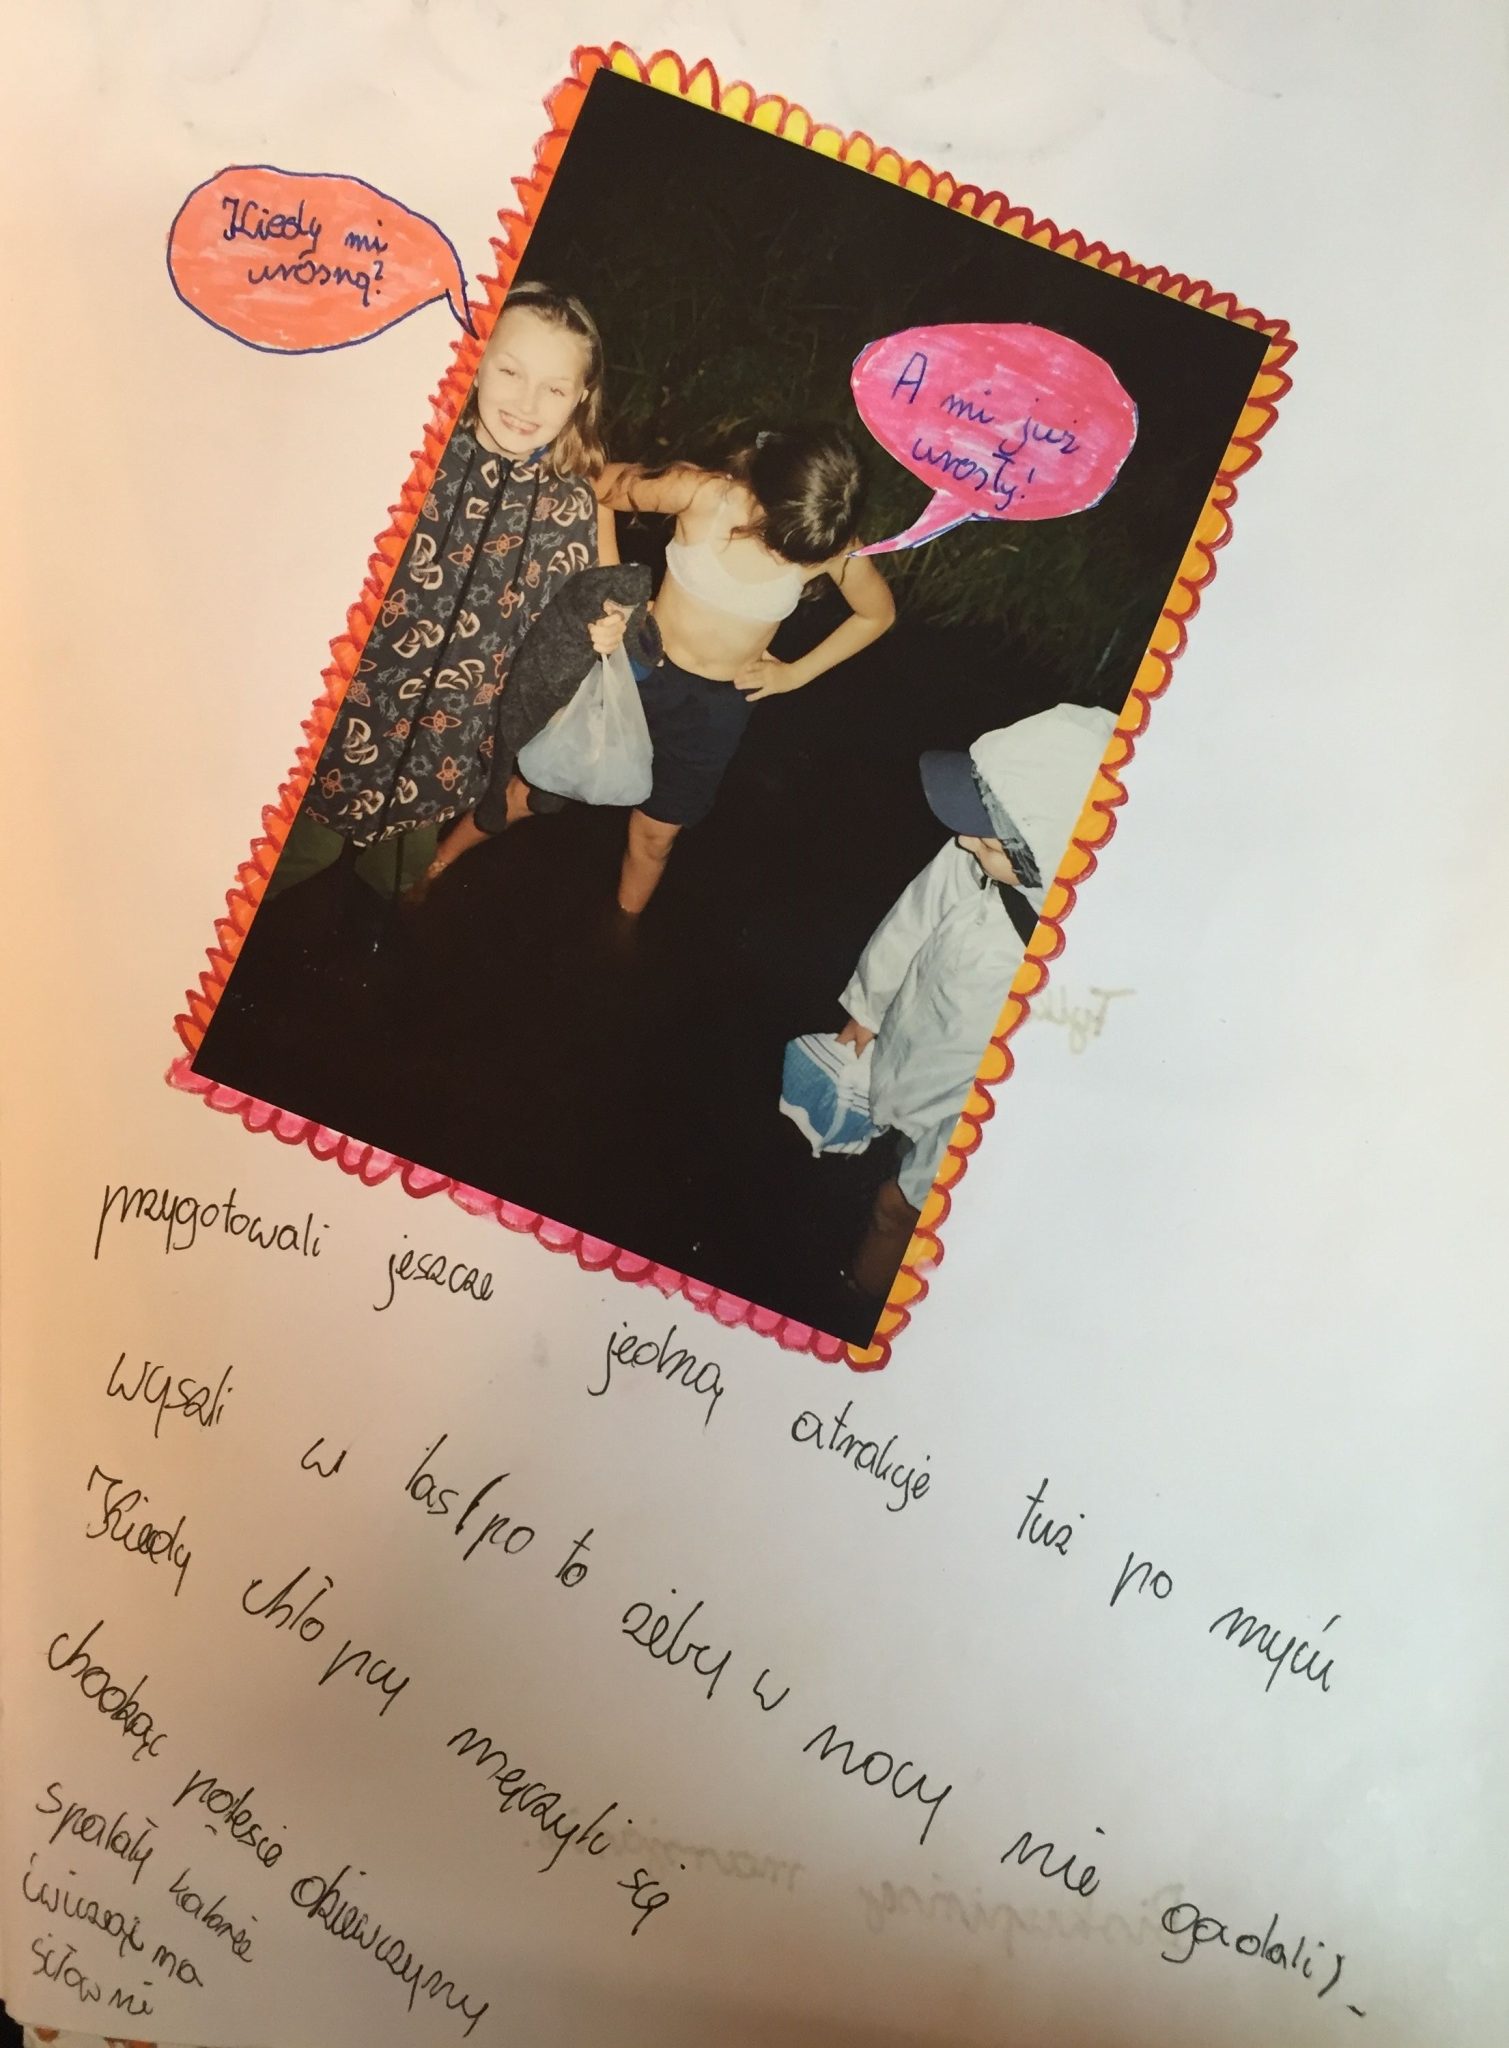 Kiedy mi
urósną?
A mi już
urosły!
przygotowali jeszcze jedną atrakcje tuż po myciu
wyszli w las (po to żeby w nocy nie gadali).
Kiedy chłopcy męczyli się
chodząc polesie dziewczyny
spalały kalorie
ćwicząc na
siłowni